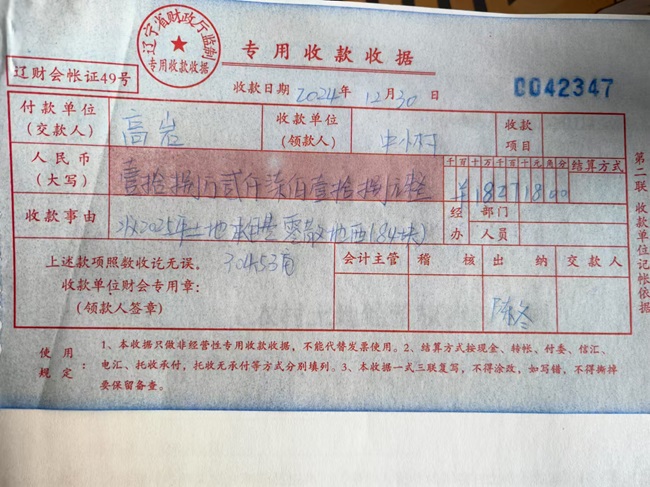 辽宁省财政厅监制
专用收款收据
专用收款收据
辽财会帐证49号
收款日期 2024年 12月30日
0042347
付款单位
(交款人)
高岩
收款单位
(领款人)
中小村
收款
项目
人民币
(大写)
壹拾捌万贰仟柒佰壹拾捌元整
千百十万千百十元角分
¥18271800
结算方式
收款事由
2025年土地
零散地西(84块)
经 部门
办 人员
上述款项照数收讫无误。
收款单位财会专用章:
(领款人签章)
会计主管
稽核
出纳
陈冬
交款人
第二联 收款单位记帐依据
使用
规定:
1、本收据只做非经营性专用收款收据,不能代替发票使用。2、结算方式按现金、转帐、付委、信汇、
电汇、托收承付,托收无承付等方式分别填列。3、本收据一式三联复写,不得涂改,如写错,不得撕掉
要保留备查。